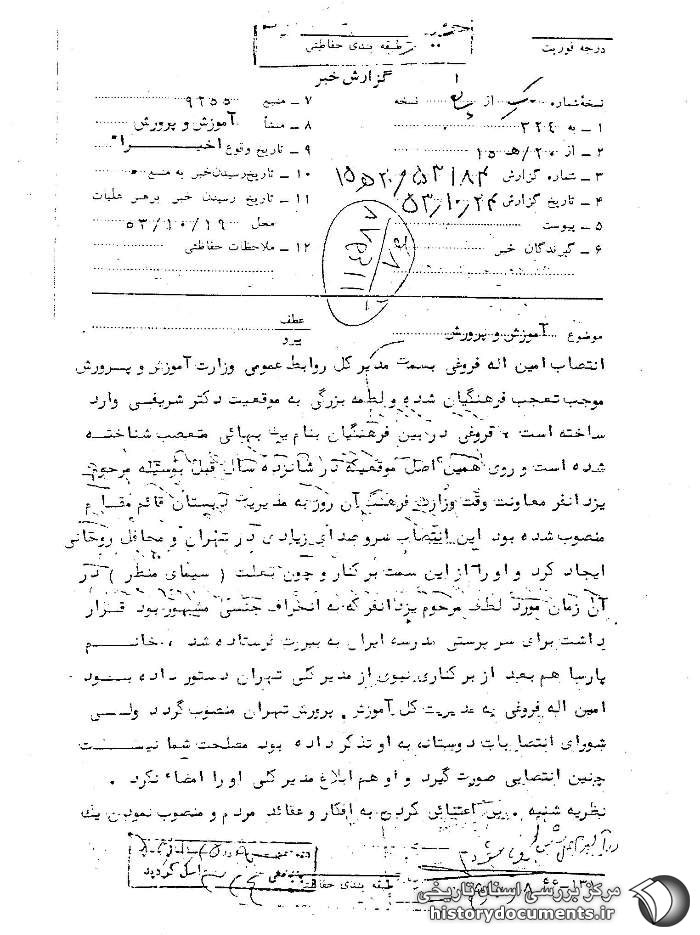 طبقه بندی حفاظتی
درجه فوریت
گزارش خبر
نسخه شماره یک از نسخه
۱ ـ به ۳۲٤
۲ ـ از ۲۰/هـ ۱۵
۳ ـ شماره گزارش
۴ ـ تاریخ گزارش ۵۳/۱۰/۲۴
۵ ـ پیوست
۶ ـ گیرندگان خبر
۷ ـ منبع ۹۲۵۵
۸ ـ منشأ آموزش و پرورش
۹ ـ تاریخ وقوع اخیرا
۱۰ ـ تاریخ رسیدن خبر به منبع
۱۱ ـ تاریخ رسیدن خبر به رهبر عملیات
محل ۵۳/۱۰/۱۹
۱۲ ـ ملاحظات حفاظتی
موضوع آموزش و پرورش
عطف
پیرو
انتصاب امین اله فروغی بسمت مدیر کل روابط عمومی وزارت آموزش و پرورش
موجب تعجب فرهنگیان شده و لطمه بزرگی به موقعیت دکتر شریفی وارد
ساخته است ، فروغی در بین فرهنگیان بنام یک بهائی متعصب شناخته
شده است و روی همین اصل موقعیکه در شانزده سال قبل بوسیله مرحوم
یزدانفر معاونت وقت وزارت فرهنگ آن روز به مدیریت دبستان قائم مقام
منصوب شده بود این انتصاب سروصدای زیادی در تهران و محافل روحانی
ایجاد کرد و او را از این سمت برکنار و چون بعلت ( سیمای منظر ) در
آن زمان مورد لطف مرحوم یزدانفر که به انحراف جنسی مشهور بود قرار
داشت برای سرپرستی مدرسه ایران به بیروت فرستاده شد ، خانم
پارسا هم بعد از برکناری نبوی از مدیر کلی تهران دستور داده بود
امین اله فروغی به مدیریت کل آموزش و پرورش تهران منصوب گردد ولی
شورای انتصابات دوستانه به او تذکر داده بود مصلحت شما نیست
چنین انتصابی صورت گیرد و او هم ابلاغ مدیر کلی او را امضاء نکرد .
نظریه شنبه . بی اعتنائی کردن به افکار و عقائد مردم و منصوب نمودن یک
طبقه بندی حفاظتی
مرکز بررسی اسناد تاریخی
historydocuments.ir